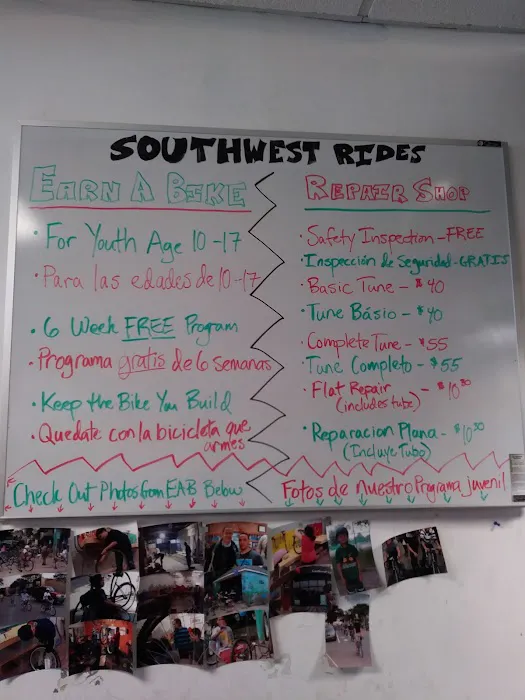 SOUTHWEST RIDES
EARN A BIKE
• For Youth Age 10-17
• Para las edades de 10-17
• 6 Week FREE Program
• Programa gratis de 6 semanas
• Keep the Bike You Build
• Quedate con la bicicleta que
armes
Check Out Photos from EAB Below
REPAIR SHOP
• Safety Inspection - FREE
• Inspección de Seguridad - GRATIS
• Basic Tune - $40
• Tune Básio - $40
• Complete Tune - $55
Tune Completo - $55
• Flat Repair - $10.50
(includes tube)
• Reparacion Plana - $10.50
(Incluye Tubo)
Fotos de nuestro Programa Juvenil